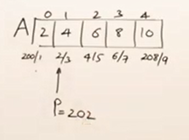 0 1 2 3 4
A 2 4 6 8 10
200/1 2/3 4/5 6/7 208/9
P=202